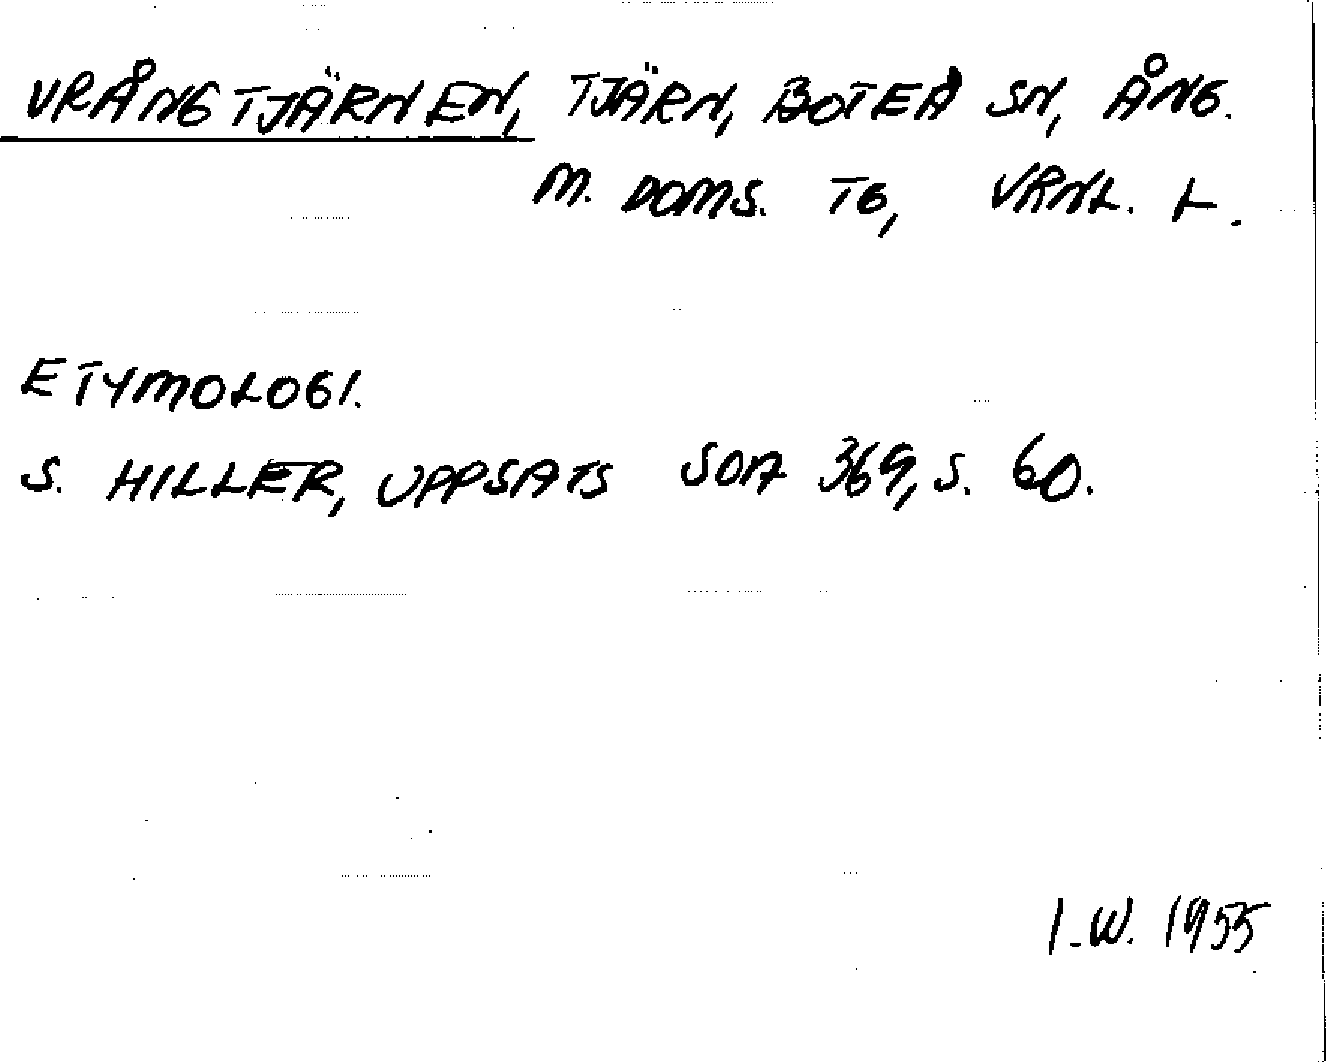 VRÅNGTJÄRNEN, TJÄRN, BOTEÅ SN, ÅNG.
M. DOMS. TG, VRNL. L.
ETYMOLOGI.
S. HILLER, UPPSATS SOA 369, S. 60.
I.W. 1955